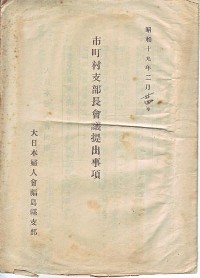 昭和十九年二月
市町村支部長會議提出事項
大日本婦人會福島縣支部